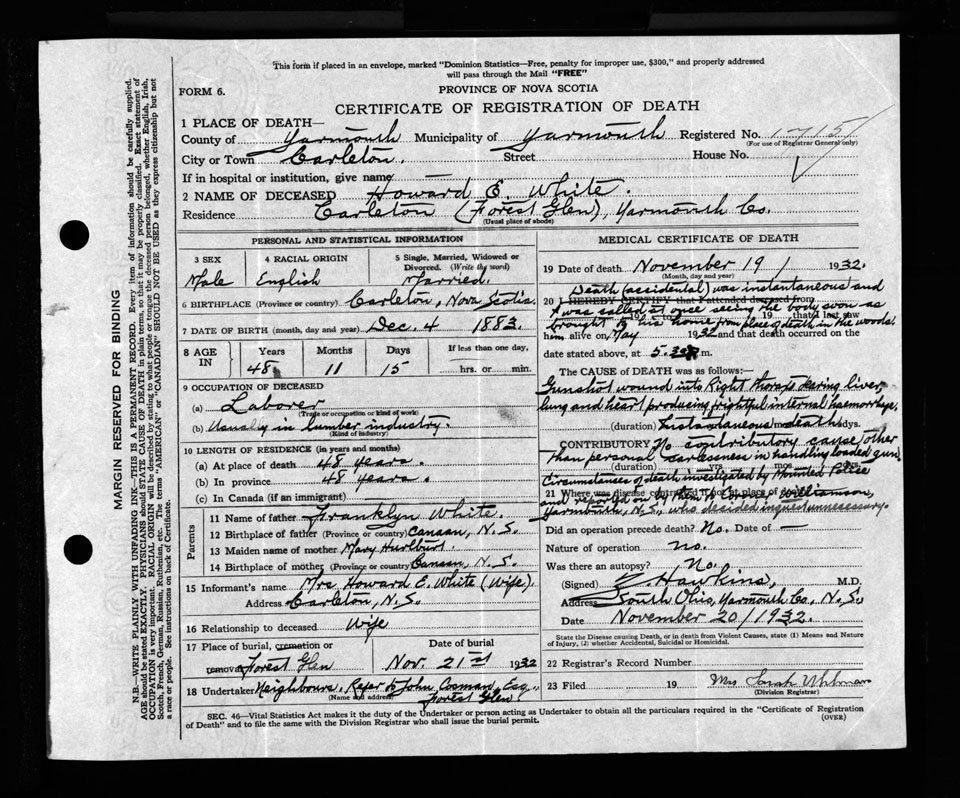 This form if placed in an envelope, marked "Dominion Statistics—Free, penalty for improper use, $300," and properly addressed
will pass through the Mail "FREE"
FORM 6.
PROVINCE OF NOVA SCOTIA
CERTIFICATE OF REGISTRATION OF DEATH
MARGIN RESERVED FOR BINDING
N.B.—WRITE PLAINLY WITH UNFADING INK—THIS IS A PERMANENT RECORD. Every item of information should be carefully supplied.
AGE should be stated EXACTLY. PHYSICIANS should STATE CAUSE OF DEATH in plain terms, so that it may be properly classified. Exact statement of
OCCUPATION is very important. RACIAL ORIGIN will be described by stating to what people or tongue the deceased person belonged, whether English, Irish,
Scotch, French, German, Russian, Ruthenian, etc. The terms "AMERICAN" or "CANADIAN" SHOULD NOT BE USED as they express citizenship but not
a race or people. See instructions on back of Certificate.
1 PLACE OF DEATH—
County of Yarmouth Municipality of Yarmouth Registered No.
(For use of Registrar General only)
City or Town Carleton. Street House No.
If in hospital or institution, give name —
2 NAME OF DECEASED Howard E. White.
Residence Carleton (Forest Glen), Yarmouth Co.
(Usual place of abode)
PERSONAL AND STATISTICAL INFORMATION
3 SEX 4 RACIAL ORIGIN 5 Single, Married, Widowed or
Divorced. (Write the word)
Male English Married.
6 BIRTHPLACE (Province or country) Carleton, Nova Scotia
7 DATE OF BIRTH (month, day and year) Dec. 4 1883.
8 AGE IN Years Months Days If less than one day,
48 11 15 hrs. or min.
9 OCCUPATION OF DECEASED
(a) Laborer
(Trade or occupation or kind of work)
(b) Usually in lumber industry.
(Kind of industry)
10 LENGTH OF RESIDENCE (in years and months)
(a) At place of death 48 years.
(b) In province 48 years.
(c) In Canada (if an immigrant)
Parents
11 Name of father Franklyn White.
12 Birthplace of father (Province or country) Canaan, N.S.
13 Maiden name of mother Mary Hurlburt.
14 Birthplace of mother (Province or country) Canaan, N.S.
15 Informant's name Mrs Howard E. White (Wife).
Address Carleton, N.S.
16 Relationship to deceased Wife
17 Place of burial, cremation or Date of burial
removal Forest Glen Nov. 21st 1932
18 Undertaker Neighbours, Refer to John Cosman, Esq.
(Name and address)
Forest Glen
MEDICAL CERTIFICATE OF DEATH
19 Date of death November 19 / 1932.
(Month, day and year)
Death (accidental) was instantaneous and
20 I HEREBY CERTIFY that I attended deceased from
I was called at once seeing the body soon as
19 to 19 that I last saw
brought to his home from place of death in the woods.
him alive on May 1932 and that death occurred on the
date stated above, at 5.30 P m.
The CAUSE OF DEATH was as follows:—
Gunshot wound into Right thorax tearing liver,
lung and heart producing frightful internal haemorrhage,
(duration) Instantaneous death dys.
CONTRIBUTORY No contributory cause other
than personal carelessness in handling loaded gun.
(duration) yrs. mos. dys.
Circumstances of death investigated by Mounted Police
21 Where was disease contracted if not at place of death?
and reported on by them to Coroner Williamson,
Yarmouth, N.S., who decided inquest unnecessary.
Did an operation precede death? No. Date of —
Nature of operation no.
Was there an autopsy? No.
(Signed) Hawkins, M.D.
Address South Ohio, Yarmouth Co., N.S.
Date November 20/1932.
State the Disease causing Death, or in death from Violent Causes, state (1) Means and Nature
of Injury, (2) whether Accidental, Suicidal or Homicidal.
22 Registrar's Record Number
23 Filed 19 Mrs Sarah
(Division Registrar)
SEC. 46—Vital Statistics Act makes it the duty of the Undertaker or person acting as Undertaker to obtain all the particulars required in the "Certificate of Registration
of Death" and to file the same with the Division Registrar who shall issue the burial permit.
(OVER)